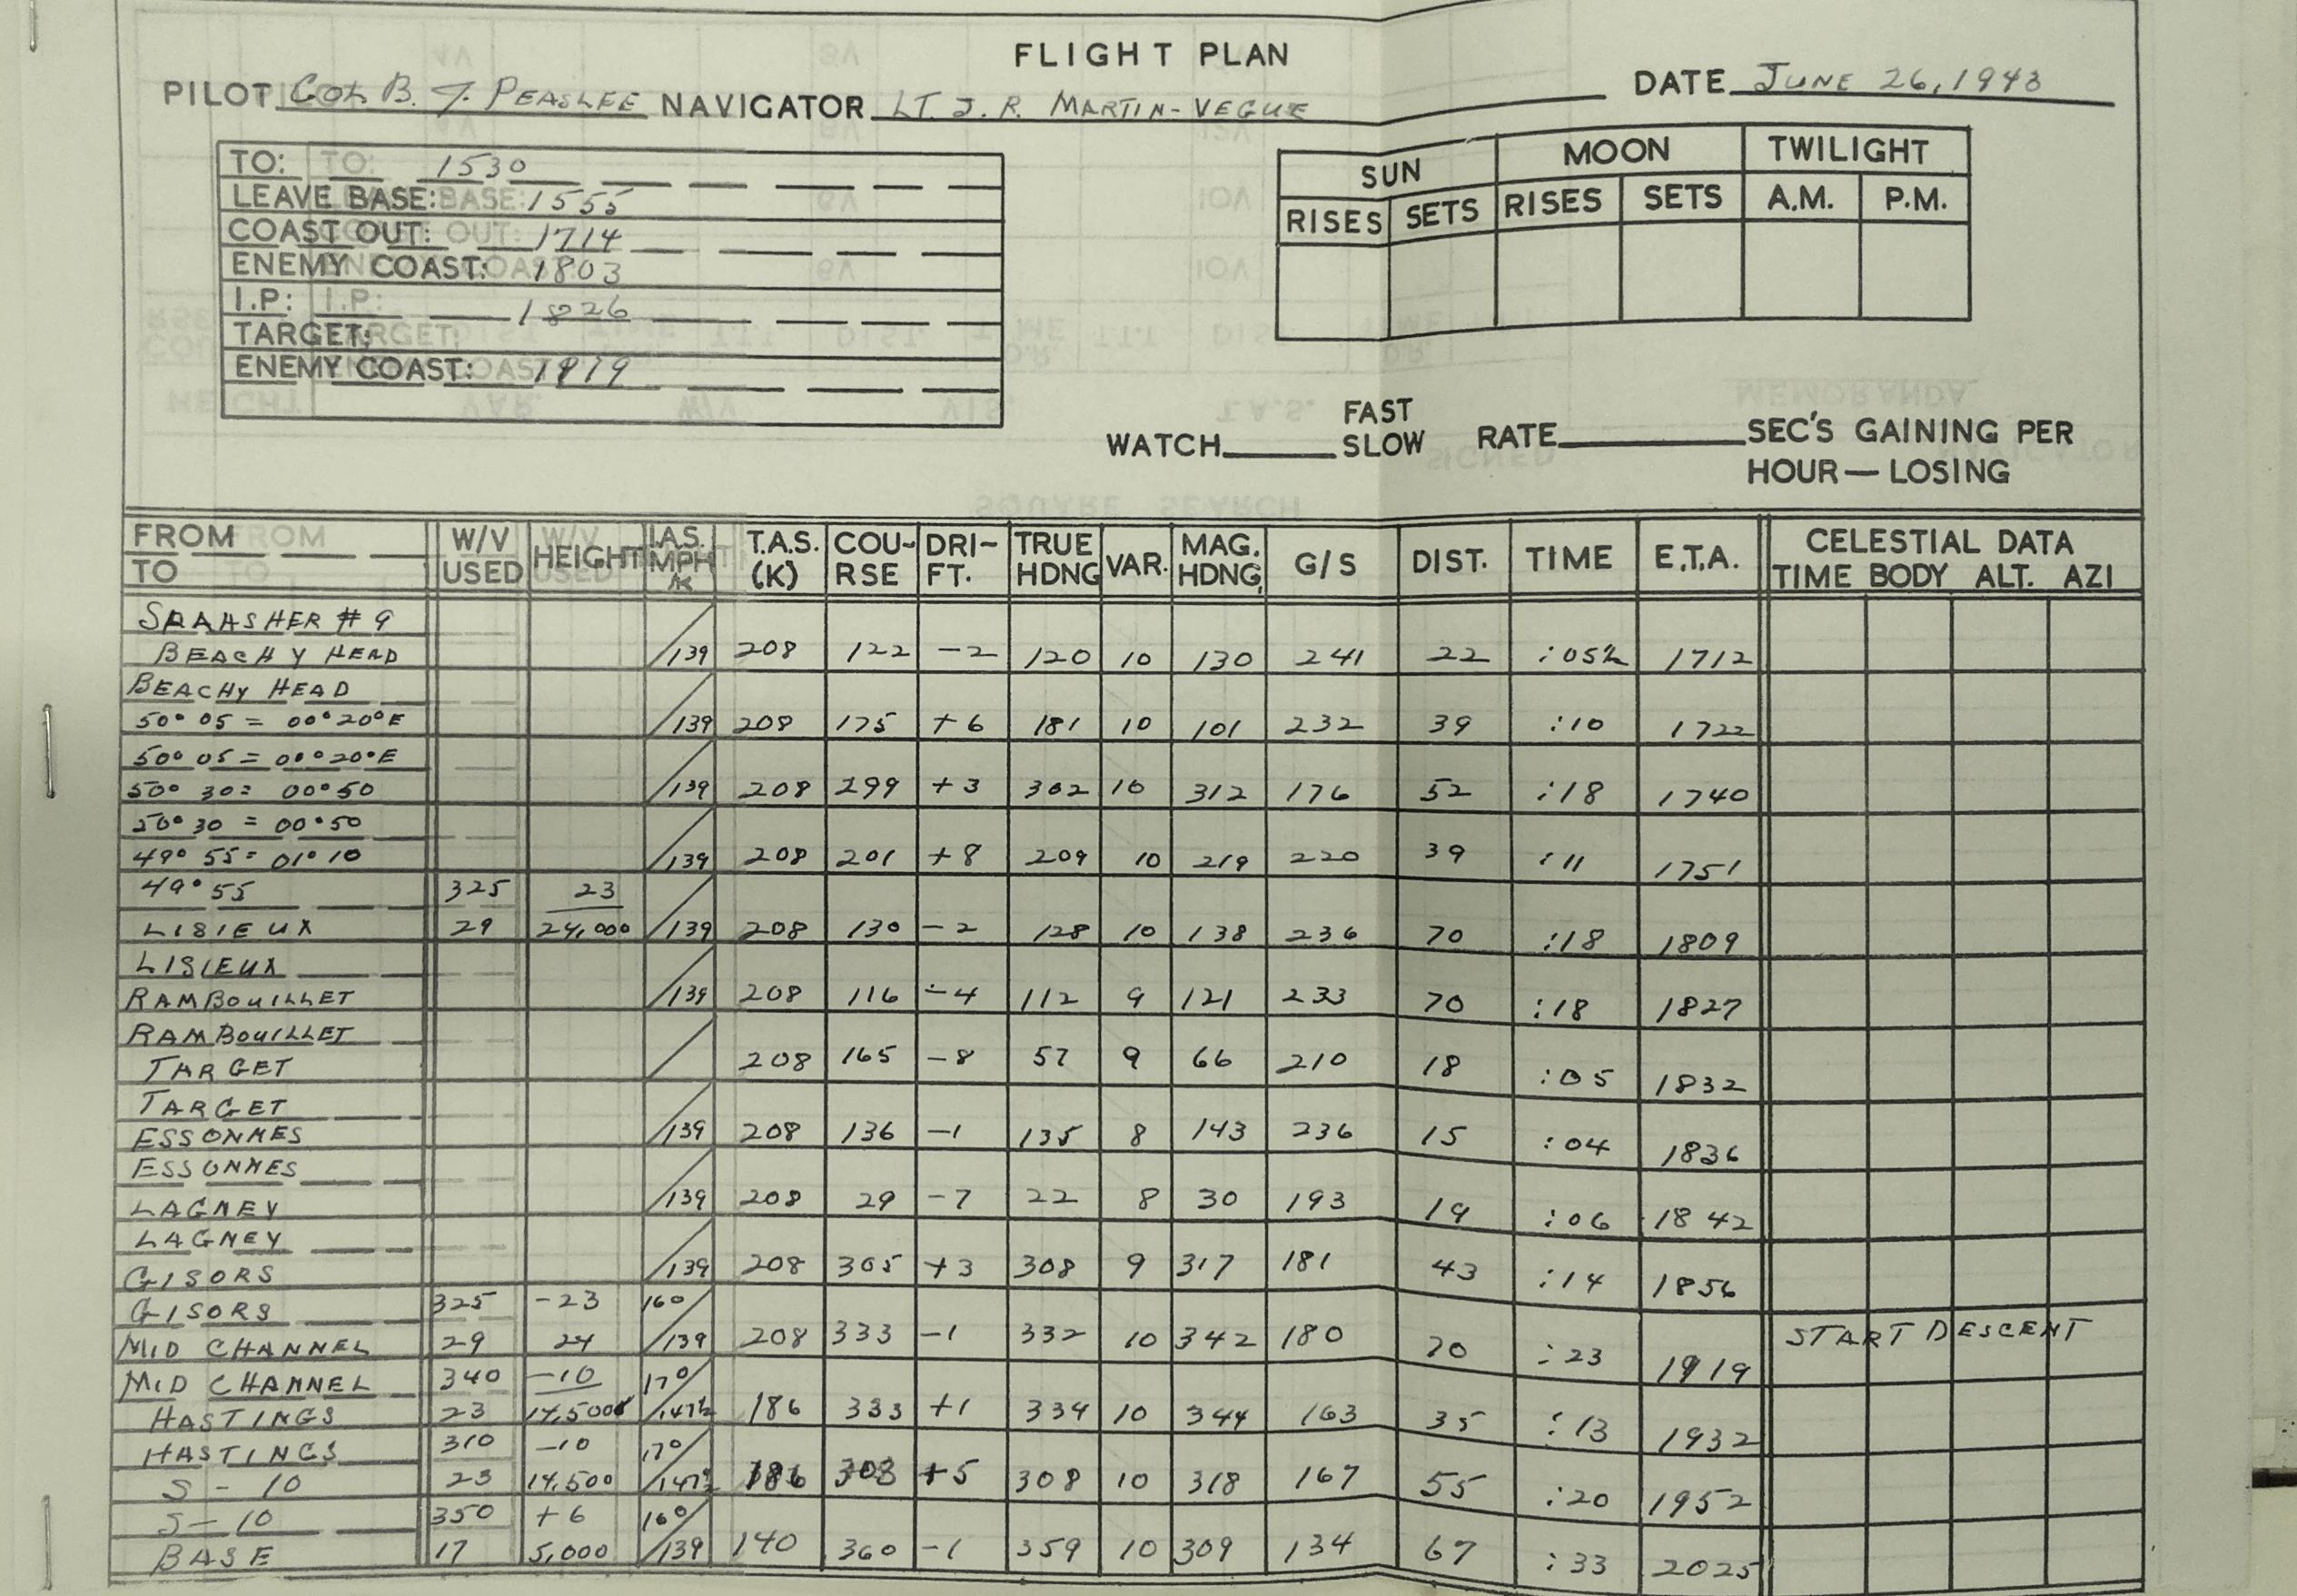 FLIGHT PLAN
PILOT COL B. J. PEASLEE NAVIGATOR LT. J. R. MARTIN-VEGUE DATE JUNE 26, 1943
TO: 1530
LEAVE BASE: 1555
COAST OUT: 1714
ENEMY COAST: 1803
I.P.: 1826
TARGET:
ENEMY COAST: 1919
SUN MOON TWILIGHT
RISES SETS RISES SETS A.M. P.M.
WATCH FAST SLOW RATE SEC'S GAINING PER
HOUR — LOSING
FROM W/V HEIGHT I.A.S. T.A.S. COU- DRI- TRUE VAR. MAG. G/S DIST. TIME E.T.A. CELESTIAL DATA
TO USED MPH /K (K) RSE FT. HDNG HDNG TIME BODY ALT. AZI
SPAHSHER # 9
BEACHY HEAD /139 208 122 -2 120 10 130 241 22 :05½ 1712
BEACHY HEAD
50° 05 = 00° 20° E /139 208 175 +6 181 10 101 232 39 :10 1722
50° 05 = 00° 20° E
50° 30 = 00° 50 /139 208 299 +3 302 10 312 176 52 :18 1740
50° 30 = 00° 50
49° 55 = 01° 10 /139 208 201 +8 209 10 219 220 39 :11 1751
49° 55 325 23
LISIEUX 29 24,000 /139 208 130 -2 128 10 138 236 70 :18 1809
LISIEUX
RAMBOUILLET /139 208 116 -4 112 9 121 233 70 :18 1827
RAMBOUILLET
TARGET / 208 165 -8 57 9 66 210 18 :05 1832
TARGET
ESSONNES /139 208 136 -1 135 8 143 236 15 :04 1836
ESSONNES
LAGNEY /139 208 29 -7 22 8 30 193 19 :06 1842
LAGNEY
GISORS /139 208 305 +3 308 9 317 181 43 :14 1856
GISORS 325 -23 160/
MID CHANNEL 29 24 /139 208 333 -1 332 10 342 180 70 :23 1919 START DESCENT
MID CHANNEL 340 -10 170/
HASTINGS 23 14,500 /147½ 186 333 +1 334 10 344 163 35 :13 1932
HASTINGS 310 -10 170/
S - 10 23 14,500 /147½ 186 303 +5 308 10 318 167 55 :20 1952
S - 10 350 +6 160/
BASE 17 5,000 /139 140 360 -1 359 10 309 134 67 :33 2025